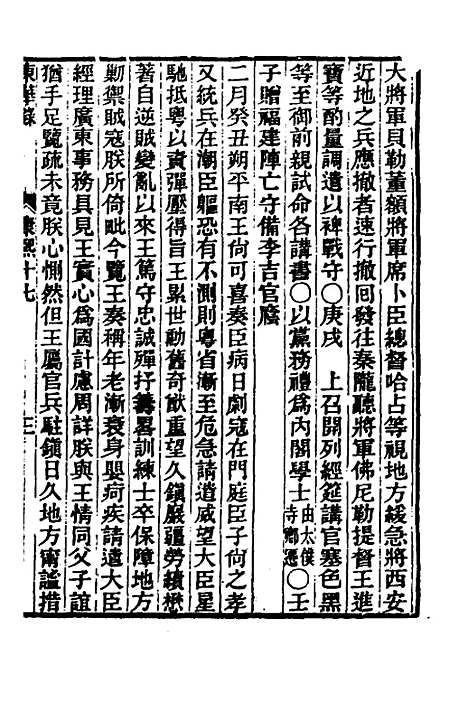 大將軍貝勒董額將軍席卜臣總督哈占等視地方緩急將西安
近地之兵應撤者速行撤囘發往秦隴聽將軍佛尼勒提督王進
寶等酌量調遣以裨戰守〇庚戌　上召開列經筵講官塞色黑
等至御前親試命各講書〇以黨務禮爲內閣學士由太僕寺卿遷〇壬
子贈福建陣亡守備李吉官廕
二月癸丑朔平南王尙可喜奏臣病日劇寇在門庭臣子尙之孝
又統兵在潮臣軀恐有不測則粵省漸至危急請遣威望大臣星
馳抵粵以資彈壓得旨王累世勳舊奇猷重望久鎭嚴疆勞績懋
著自逆賊變亂以來王篤守忠誠殫抒籌畧訓練士卒保障地方
勦禦賊寇朕所倚毗今覽王奏稱年老漸衰身嬰疴疾請遣大臣
經理廣東事務具見王實心爲國計慮周詳朕與王情同父子誼
猶手足覽疏未竟朕心惻然但王屬官兵駐鎭日久地方甯謐措
東華錄　康熙十七